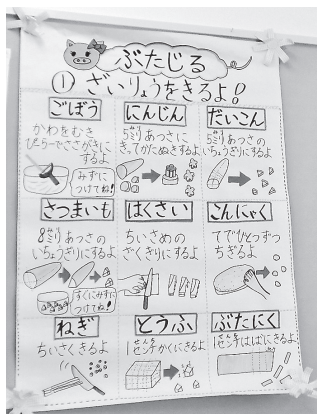 ぶたじる
① ざいりょうをきるよ!
ごぼう
かわをむき
ぴーらーでささがきに
するよ
みずに
つけてね!
にんじん
5ミリあつさに
きってかたぬきするよ
だいこん
5ミリあつさの
いちょうぎりにするよ
さつまいも
8ミリあつさの
いちょうぎりにするよ
すぐにみずに
つけてね!
はくさい
ちいさめの
ざくぎりにするよ
こんにゃく
てでひとつずつ
ちぎるよ
ねぎ
ちいさくきるよ
とうふ
1センチかくにきるよ
ぶたにく
1センチはばにきるよ